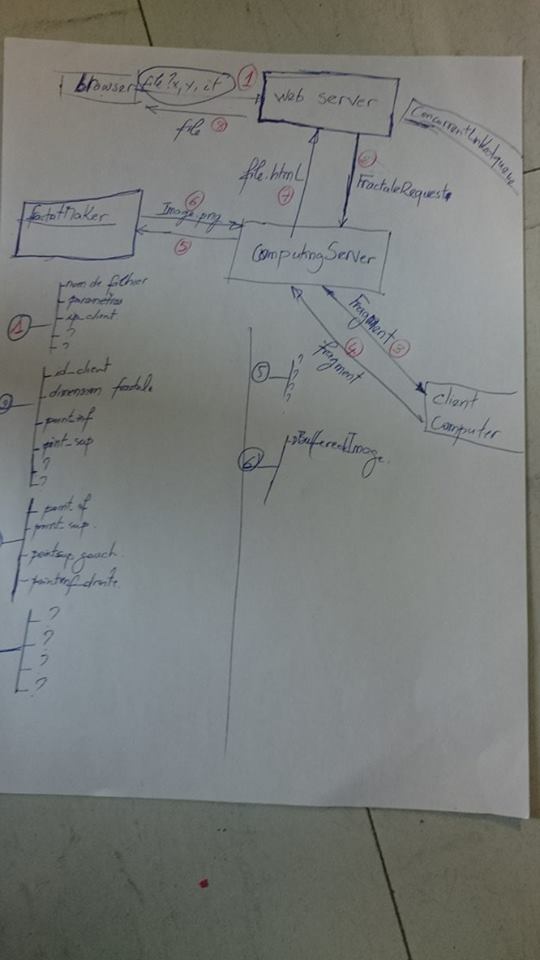 browser
file?x,y,it
1
Web server
ConcurrentLinkedqueue
file
8
file.html
7
2
FractaleRequest
6
Image.png
5
ComputingServer
Fragment
3
fragment
4
client
Computer
1
nom de fichier
paramètres
ip_client
?
?
id_client
dimension fractale
point_inf
point_sup
?
?
point_inf
point_sup.
pointsup_gauch.
pointinf_droite.
?
?
?
?
5
?
?
?
6
BufferedImage.